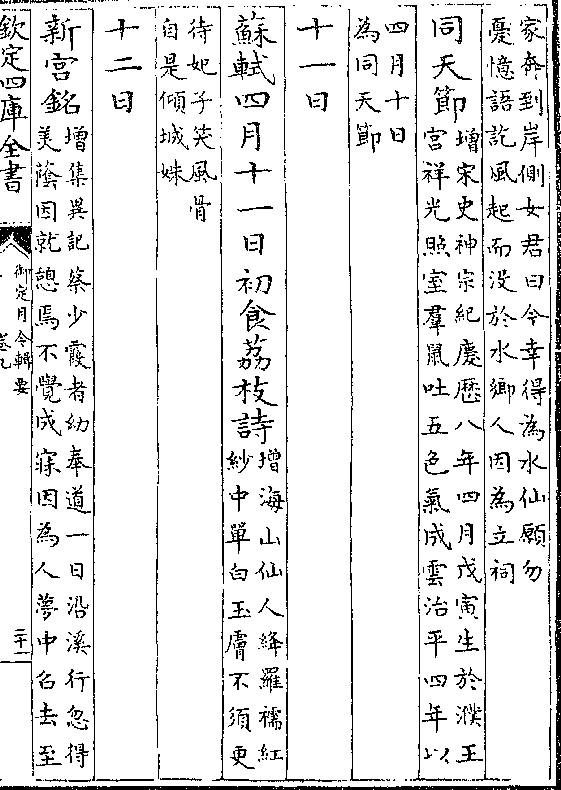 家奔到岸側女君曰今幸得為水仙願勿
憂憶語訖風起而没於水鄉人因為立祠
同天節增宋史神宗紀慶歷八年四月戊寅生於濮王
宮祥光照室羣鼠吐五色氣成雲治平四年以
四月十日
為同天節
十一日
蘇軾四月十一日初食荔枝詩增海山仙人絳羅襦紅
紗中單白玉膚不須更
待妃子笑風骨
自是傾城姝
十二日
新宮銘增集異記蔡少霞者幼奉道一日沿溪行忽得
美蔭因就憩焉不覺成寐因為人夢中召去至
欽定四庫全書
御定月令輯要
卷九
三十一